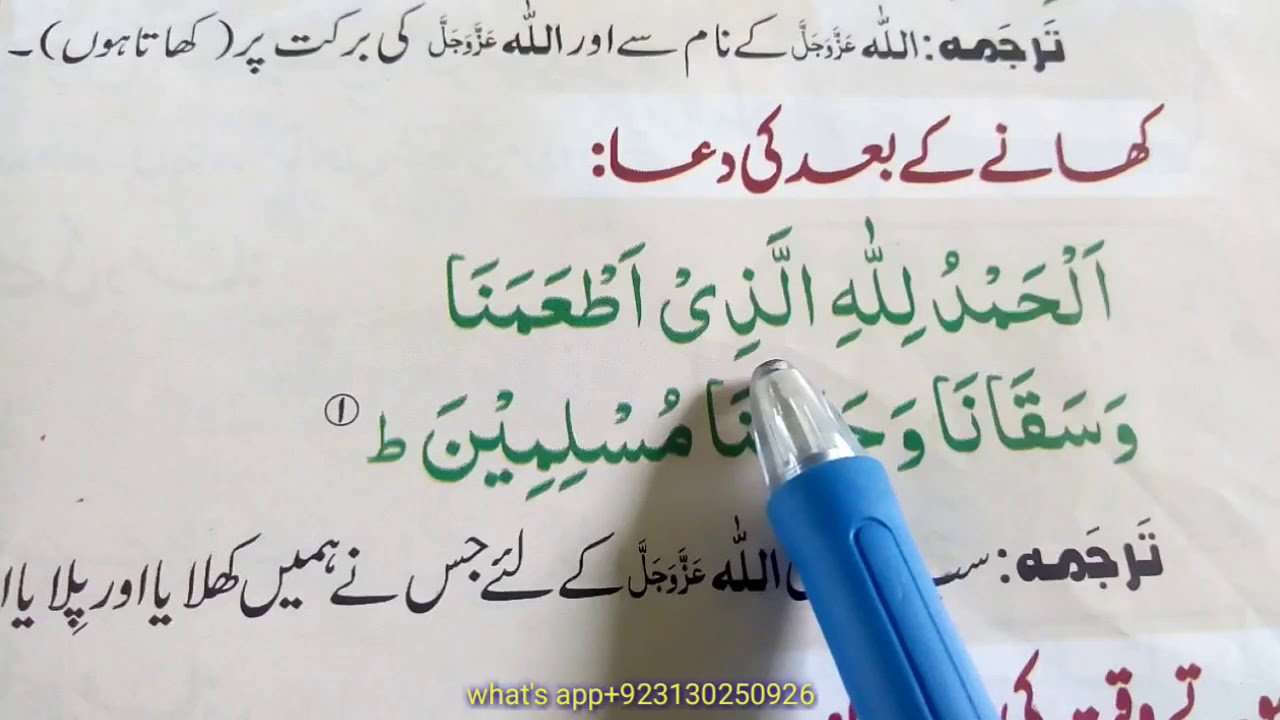 تَرجَمه: اللّٰه عَزَّوَجَلَّ کے نام سے اور اللّٰه عَزَّوَجَلَّ کی برکت پر (کھاتا ہوں)۔
کھانے کے بعد کی دعا:
اَلْحَمْدُ لِلّٰهِ الَّذِیْ اَطْعَمَنَا
وَسَقَانَا مُسْلِمِیْنَ ط ①
تَرجَمه: اللّٰه عَزَّوَجَلَّ کے لئے جس نے ہمیں کھلایا اور پِلایا
کی
what's app+923130250926